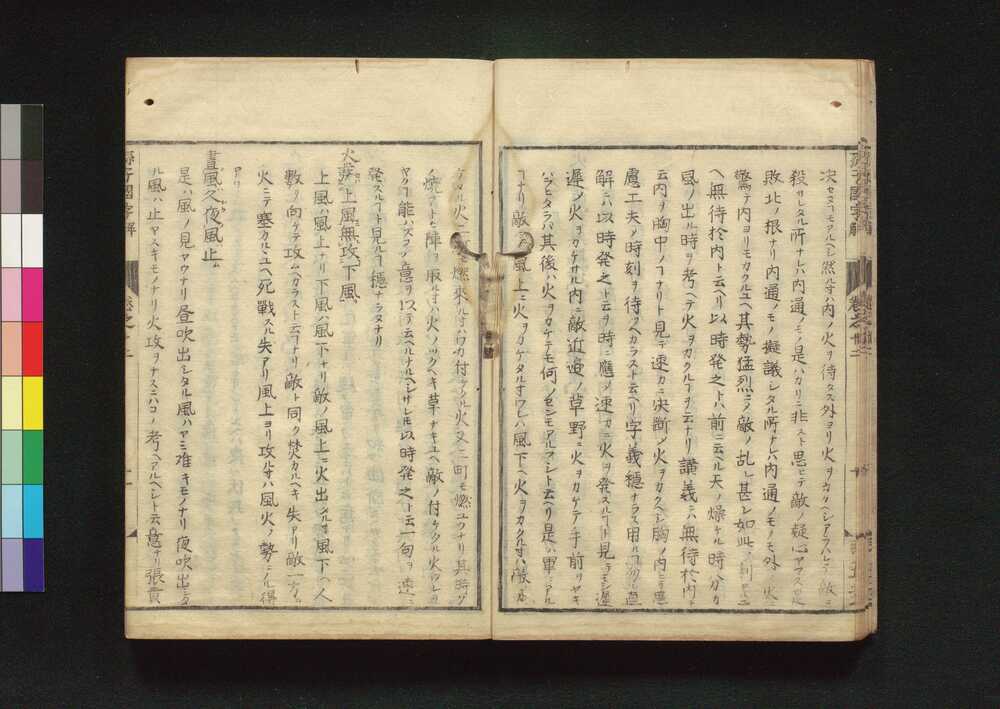 孫子國字解
卷之十二
決セスコモアルヘシ然ルオハ内ノ火ヲ待タス外ヨリ火ヲカカヘシ
殺サレタル所ナレハ内通ノモノ是ハカリニ非スト思ヒテ敵ノ疑心ヤマス是
敗北ノ根ナリ内通ノモノ擬議シタル所ナレハ内通ノモノモ外ノ火ニ
驚テ内ヨリモカクルユヘ其勢猛烈ニノ敵ノ乱レ甚シ如此ノ
ヘ無待於内ト云ヘリ以時発之トハ前ニ云ヘル天ノ燥ケル時分カ
風ノ出ル時ヲ考ヘテ火ヲカクルヿヲ云ナリ講義ニハ無待於内ト
云内ヲ胸中ノヿナリト見テ速カニ决断〆火ヲカクヘシ胸ノ内ニテ
慮工夫ノ時刻ヲ待ツヘカラスト云ヘリ字義穏ナラス用ルヿ勿レ直
解ニハ以時発之ト云ヲ時ニ應〆速カニ火ヲ発スルヿト見ラモシ遅
遅〆火ヲカケサル内ニ敵近邉ノ草野ニ火ヲカケテ手前ヲヤキ
ハラヒタラハ其後ハ火ヲカケテモ何ノセンモアルマシト云ヘリ是ハ軍ニアル
ヿナリ敵ヨリ風上ニ火ヲカケタルオワレハ風下ヘ火ヲカクルオハ敵ノカ
ケタル火二町モ燃來ルオワカ付タル火又二町モ燃ユクナリ其時ヤ
ノ焼アトヘ陣ヲ取ルオハ火ノツクヘキ草ナキユヘ敵ノ付ケタル火ワレヲ
ヤクヿ能ハズコノ意ヲ以テ云ヘルナルヘシサレ𪜈以時発之ト云一句ヲ速ニ
発スルヿト見ルヿ穏ナラヌナリ
火發上風無攻下風
上風ハ風上ナリ下風ハ風下ナリ敵ノ風上ニ火出タルオ風下ヘ人
數ヲ向ケテ攻ムヘカラスト云ヿナリ敵ト同ク焚カルヘキ失アリ敵一方ハ
火ニテ塞クルユヘ死戰スル失アリ風上ヨリ攻ルオハ風火ノ勢ニノル得
アリ
晝風久夜風止
是ハ風ノ見ヤウナリ昼吹出シタル風ハヤミ難キモノナリ夜吹出シタ
ル風ハ止ヤスキモノナリ火攻ヲナスニハコレヲ考ヘアルヘシト云意ナリ張賁
孫子國字解
卷之十二